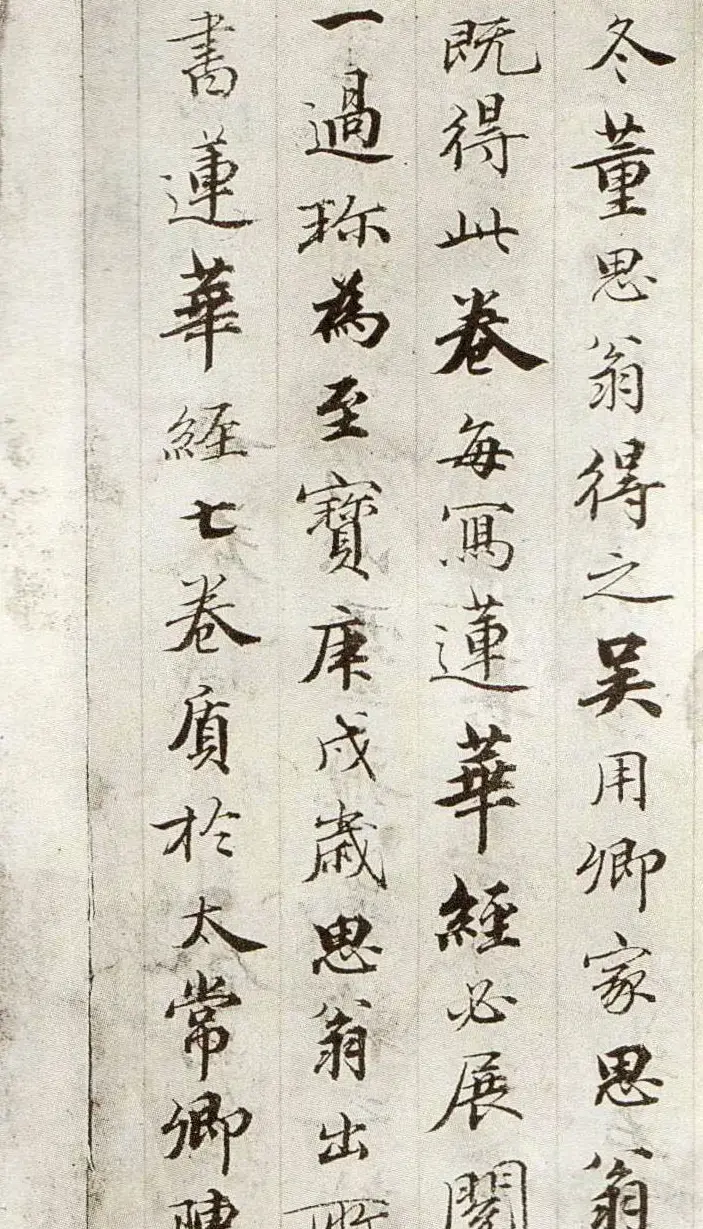 冬董思翁得之吴用卿家思翁
既得此卷每寫蓮華經必展閱
一過珎為至寶庚戌歲思翁出所
書蓮華經七卷質於太常卿陳